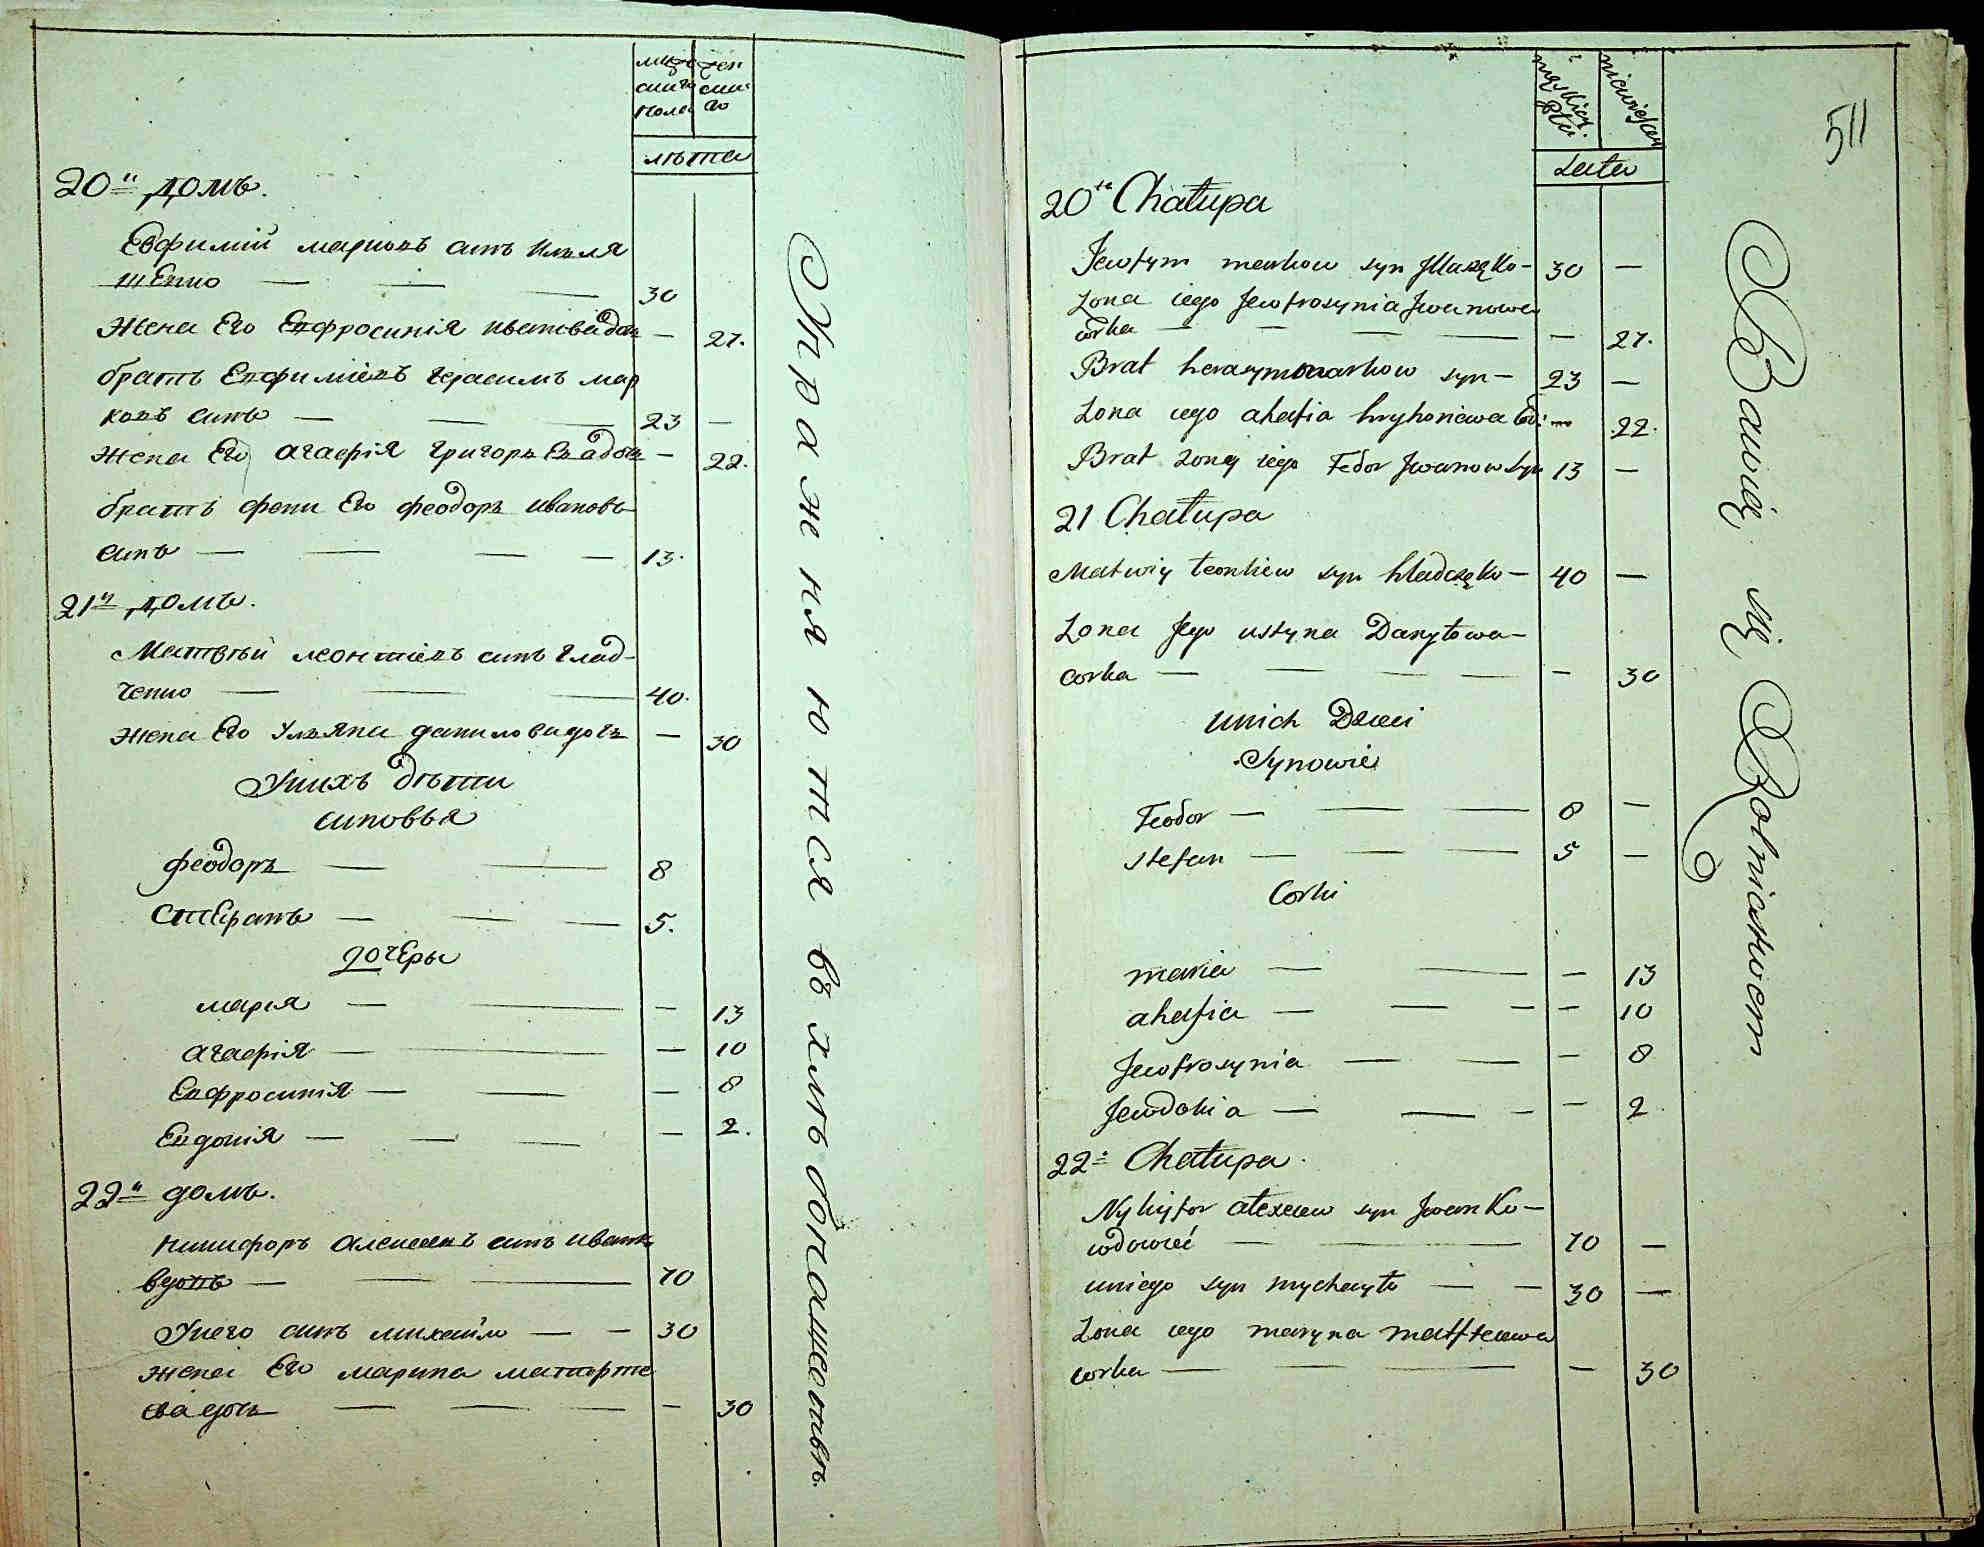 мужс жен
ского ско
пола го
лѣта
20й домъ.
Евфимій марковъ синъ Илля
шенко — — — 30
жена Его Евфросинія иванова дочь — 27.
братъ Евфиміевъ герасимъ мар
ковъ синъ — — — 23 —
жена Его агафія григорьева дочь — 22.
братъ жени Его феодоръ ивановъ
синъ — — — — 13.
21й домъ.
Матвѣй леонтіевъ синъ глад-
ченко — — — 40.
жена Его Ульяна данилова дочь — 30
У нихъ дѣти
синовья
феодоръ — — 8
Стефанъ — — — 5.
дочеры
марія — — — 13
агафія — — — 10
Евфросинія — — — 8
Евдокія — — — — 2.
22й домъ.
Никифоръ алексеевъ синъ иванко
вдовъ — — — 70
У него синъ михайло — — 30
жена Его марина матфе
ева дочь — — — — 30
Упражняются въ хлѣбопашенствѣ.
511
męskiey Płci
niewieściey
Lata
20ta Chałupa
Jewfym markow syn Jllaszęko — 30 —
Zona iego Jewfrosynia Jwanowa
corka — — — — 27.
Brat herasym markow syn — 23 —
Zona iego ahafia hryhoriewa cór: — 22.
Brat Zony iego Fedor Jwanow syn 13 —
21 Chałupa
Matwiy leontiew syn hładczęko — 40 —
Zona Jego ustyna Daniłowa —
corka — — — — — 30
u nich Dzieci
Synowie
Feodor — — — 8 —
Stefan — — — 5 —
Corki
maria — — — 13
ahafia — — — — 10
Jewfrosynia — — — 8
Jewdokia — — — — 2
22a Chałupa.
Nykyfor alexeiew syn Jwanko —
wdowiec — — 70 —
u niego syn mychayło — — 30 —
Zona iego maryna matfeiewa
corka — — — — 30
Bawię się Rolnictwem